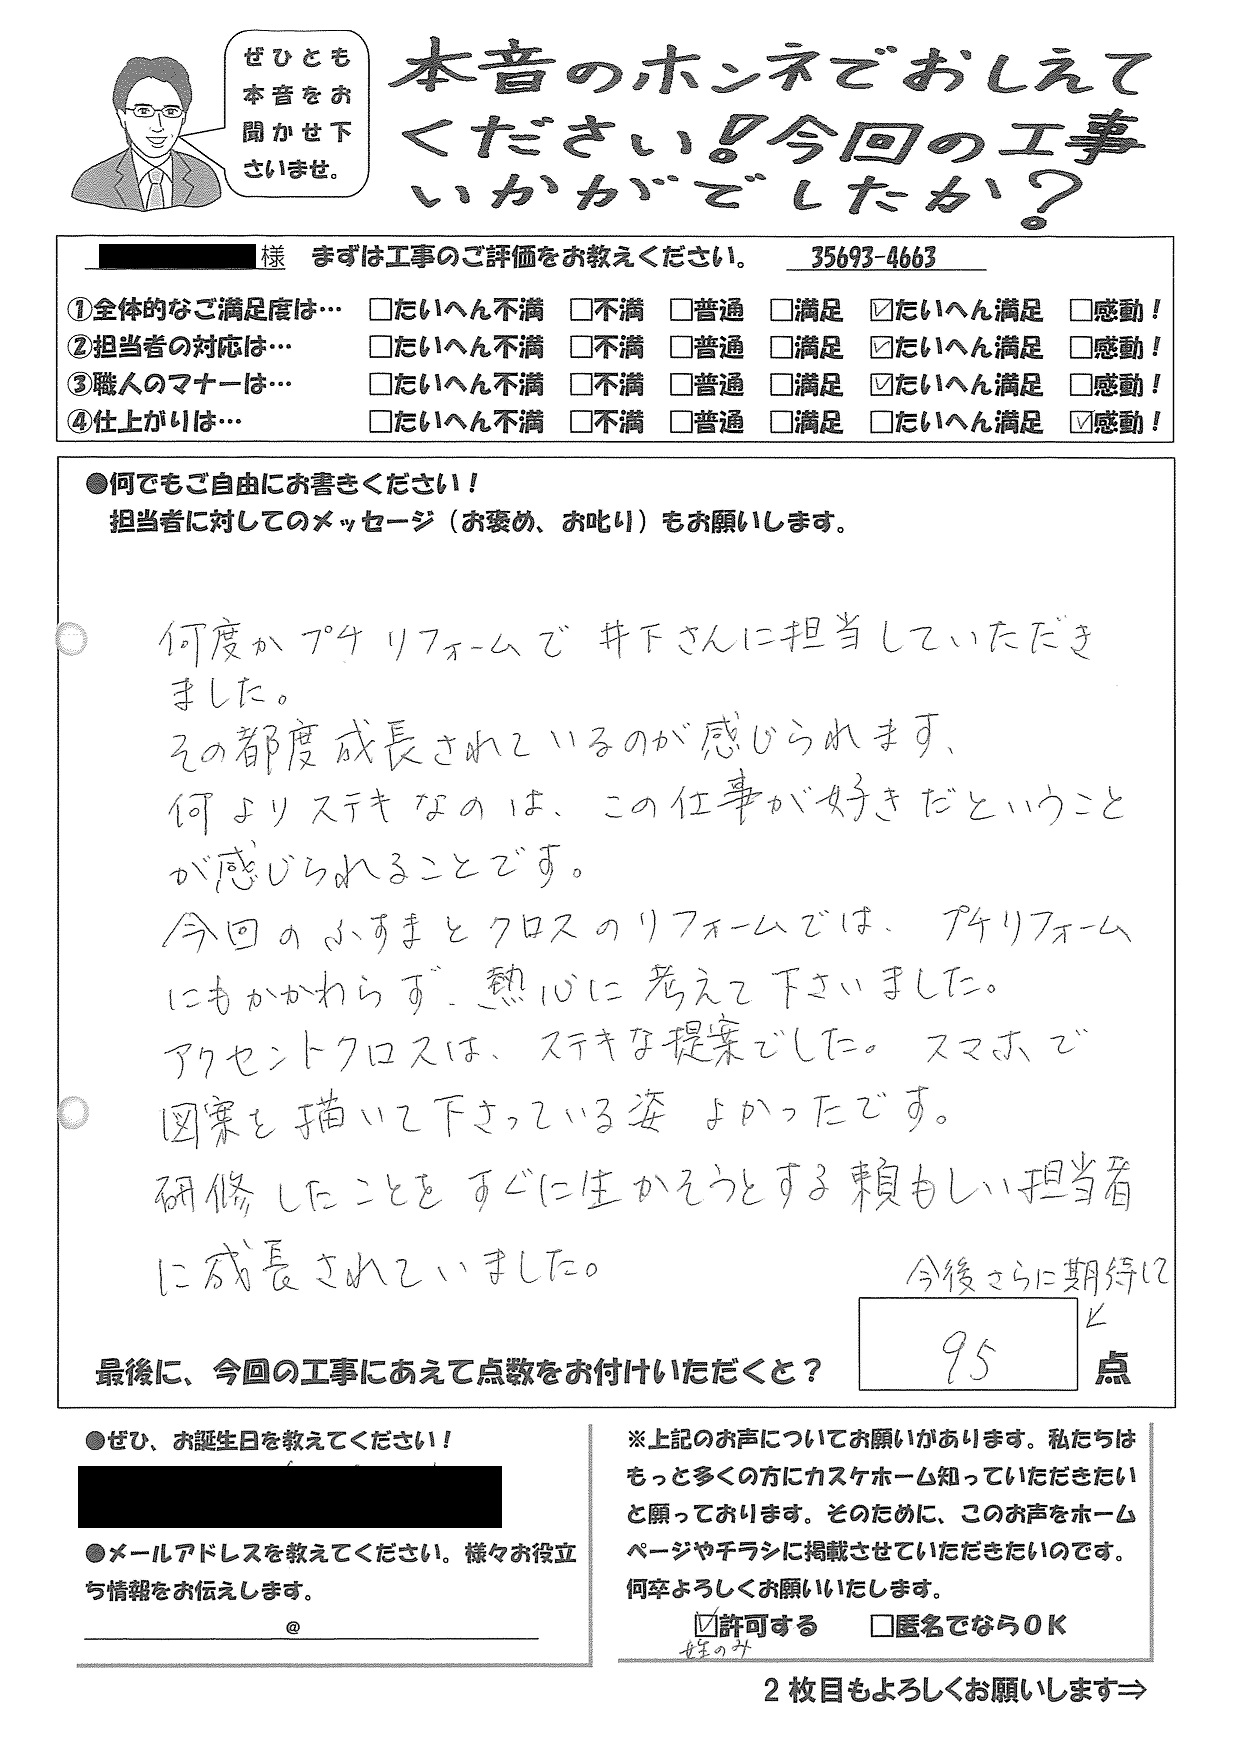 ぜひとも
本音をお
聞かせ下
さいませ。
本音のホンネでおしえて
ください！今回の工事
いかがでしたか？
様 まずは工事のご評価をお教えください。 35693-4663
①全体的なご満足度は… □たいへん不満 □不満 □普通 □満足 ☑たいへん満足 □感動！
②担当者の対応は… □たいへん不満 □不満 □普通 □満足 ☑たいへん満足 □感動！
③職人のマナーは… □たいへん不満 □不満 □普通 □満足 ☑たいへん満足 □感動！
④仕上がりは… □たいへん不満 □不満 □普通 □満足 □たいへん満足 ☑感動！
●何でもご自由にお書きください！
担当者に対してのメッセージ（お褒め、お叱り）もお願いします。
何度かプチリフォームで 井下さんに担当していただき
ました。
その都度成長されているのが感じられます、
何よりステキなのは、この仕事が好きだということ
が感じられることです。
今回のふすまとクロスのリフォームでは、プチリフォーム
にもかかわらず、熱心に考えて下さいました。
アクセントクロスは、ステキな提案でした。スマホで
図案を描いて下さっている姿 よかったです。
研修したことをすぐに生かそうとする頼もしい担当者
に成長されていました。
今後さらに期待して
95
最後に、今回の工事にあえて点数をお付けいただくと？ 点
●ぜひ、お誕生日を教えてください！
●メールアドレスを教えてください。様々お役立
ち情報をお伝えします。
@
※上記のお声についてお願いがあります。私たちは
もっと多くの方にカスケホーム知っていただきたい
と願っております。そのために、このお声をホーム
ページやチラシに掲載させていただきたいのです。
何卒よろしくお願いいたします。
☑許可する □匿名でならＯＫ
姓のみ
２枚目もよろしくお願いします⇒